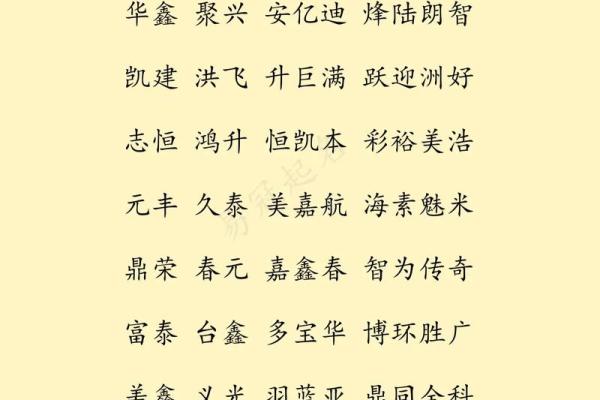 华鑫 聚兴 安亿迪 烽陆朗智
凯建 洪飞 升巨满 跃迎洲好
志恒 鸿升 恒凯本 彩裕美浩
元丰 久泰 美嘉航 海素魅米
鼎荣 春元 嘉鑫春 智为传奇
富泰 台鑫 多宝华 博环胜广
美鑫 义光 羽蓝亚 鼎同全科
易冠起名